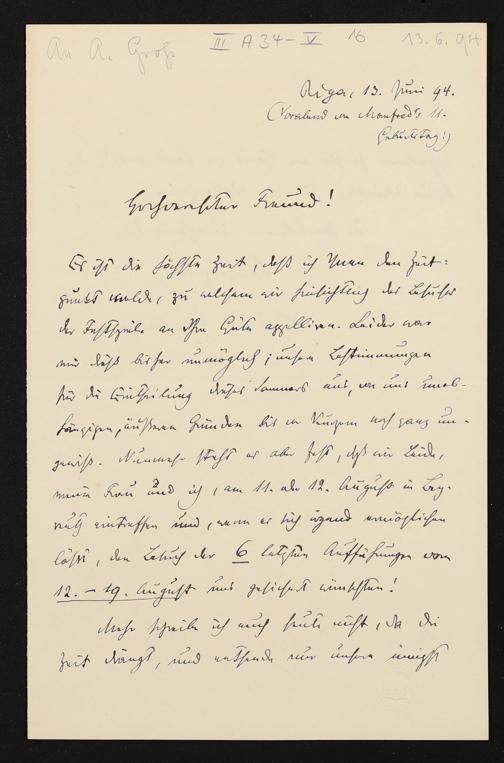 An A. Groß III A 34 - V 16 13.6.94
Riga, 13. Juni 94.
(Vorabend von Manfred's 11.
Geburtstag!)
Hochverehrter Freund!
Es ist die höchste Zeit, daß ich Ihnen den Zeit-
punkt melde, zu welchem wir hinsichtlich des Besuches
der Festspiele an Ihre Güte appelliren. Leider war
mir dieß bisher unmöglich; unsere Bestimmungen
für die Eintheilung dieses Sommers aus, von uns unab-
hängigen, äußeren Gründen bis vor Kurzem noch ganz un-
gewiß. Nunmehr steht es aber fest, daß wir Beide,
meine Frau und ich, am 11. oder 12. August in Bay-
reuth eintreffen und, wenn es sich irgend ermöglichen
läßt, den Besuch der 6 letzten Aufführungen vom
12. - 19. August uns gesichert wünschten!
Mehr schreibe ich auch heute nicht, da die
Zeit drängt, und entsende nur unsere innigst